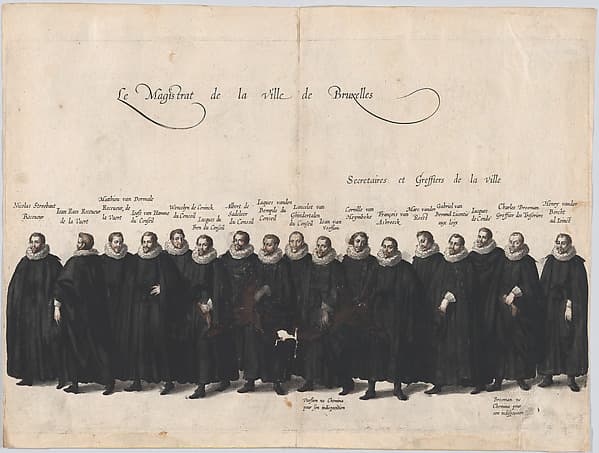 Le Magistrat de la Ville de Bruxelles
Secretaires et Greffiers de la ville
Nicolas Stroobant
Receveur
Jean Rau Receveur
de la Vuert
Matthieu van Dormale
Receveur, de
la Vuert
Josse van Hamme
du Conseil
Wenceln de Coninck
du Conseil
Jacques de
du Conseil
Albert de
Sadeleer
du Conseil
Jaques vanden
du Conseil
Lancelot van
du Conseil
Jean van
Corneille van
François van
Asbroeck
Marc vanden
Gabriel van
Bemmel Licentie
aux loix
Jacques
de Conde
Charles Broeman
Greffier des Tresoriers
Henry vander
Borcht
ne Chemina
pour son indisposition
Broeman ne
Chemina pour
son indisposition